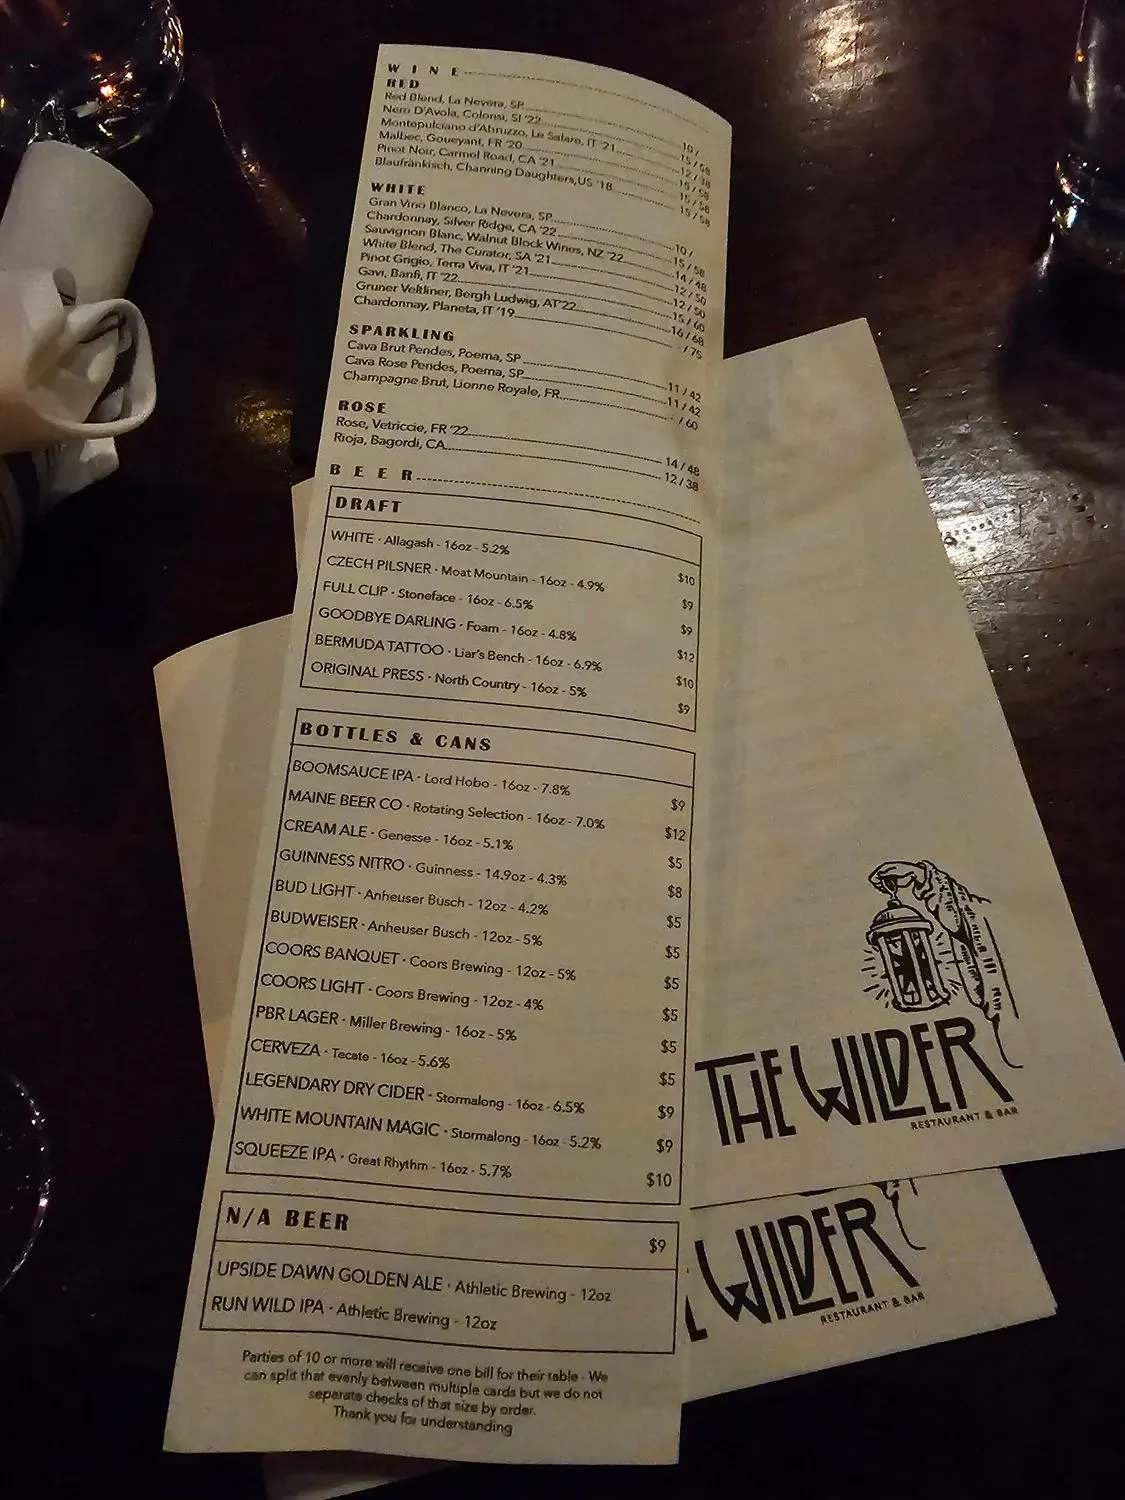 WINE
RED
Red Blend, La Nevera, SP 10 /
Nero D'Avola, Colorisi, SI '22 15 / 58
Montepulciano d'Abruzzo, Le Salare, IT '21 12 / 38
Malbec, Goueyant, FR '20 15 / 58
Pinot Noir, Carmel Road, CA '21 15 / 58
Blaufränkisch, Channing Daughters,US '18 15 / 58
WHITE
Gran Vino Blanco, La Nevera, SP 10 /
Chardonnay, Silver Ridge, CA '22 15 / 58
Sauvignon Blanc, Walnut Block Wines, NZ '22 14 / 48
White Blend, The Curator, SA '21 12 / 50
Pinot Grigio, Terra Viva, IT '21 12 / 50
Gavi, Banfi, IT '22 15 / 60
Gruner Veltliner, Bergh Ludwig, AT'22 16 / 68
Chardonnay, Planeta, IT '19 - / 75
SPARKLING
Cava Brut Pendes, Poema, SP 11 / 42
Cava Rose Pendes, Poema, SP 11 / 42
Champagne Brut, Lionne Royale, FR - / 60
ROSE
Rose, Vetriccie, FR '22 14 / 48
Rioja, Bagordi, CA 12 / 38
BEER
DRAFT
WHITE · Allagash - 16oz - 5.2% $10
CZECH PILSNER · Moat Mountain - 16oz - 4.9% $9
FULL CLIP · Stoneface - 16oz - 6.5% $9
GOODBYE DARLING · Foam - 16oz - 4.8% $12
BERMUDA TATTOO · Liar's Bench - 16oz - 6.9% $10
ORIGINAL PRESS · North Country - 16oz - 5% $9
BOTTLES & CANS
BOOMSAUCE IPA · Lord Hobo - 16oz - 7.8% $9
MAINE BEER CO · Rotating Selection - 16oz - 7.0% $12
CREAM ALE · Genesse - 16oz - 5.1% $5
GUINNESS NITRO · Guinness - 14.9oz - 4.3% $8
BUD LIGHT · Anheuser Busch - 12oz - 4.2% $5
BUDWEISER · Anheuser Busch - 12oz - 5% $5
COORS BANQUET · Coors Brewing - 12oz - 5% $5
COORS LIGHT · Coors Brewing - 12oz - 4% $5
PBR LAGER · Miller Brewing - 16oz - 5% $5
CERVEZA · Tecate - 16oz - 5.6% $5
LEGENDARY DRY CIDER · Stormalong - 16oz - 6.5% $9
WHITE MOUNTAIN MAGIC · Stormalong - 16oz - 5.2% $9
SQUEEZE IPA · Great Rhythm - 16oz - 5.7% $10
N/A BEER $9
UPSIDE DAWN GOLDEN ALE · Athletic Brewing - 12oz
RUN WILD IPA · Athletic Brewing - 12oz
Parties of 10 or more will receive one bill for their table - We
can split that evenly between multiple cards but we do not
separate checks of that size by order.
Thank you for understanding
THE WILDER
RESTAURANT & BAR
WILDER
RESTAURANT & BAR